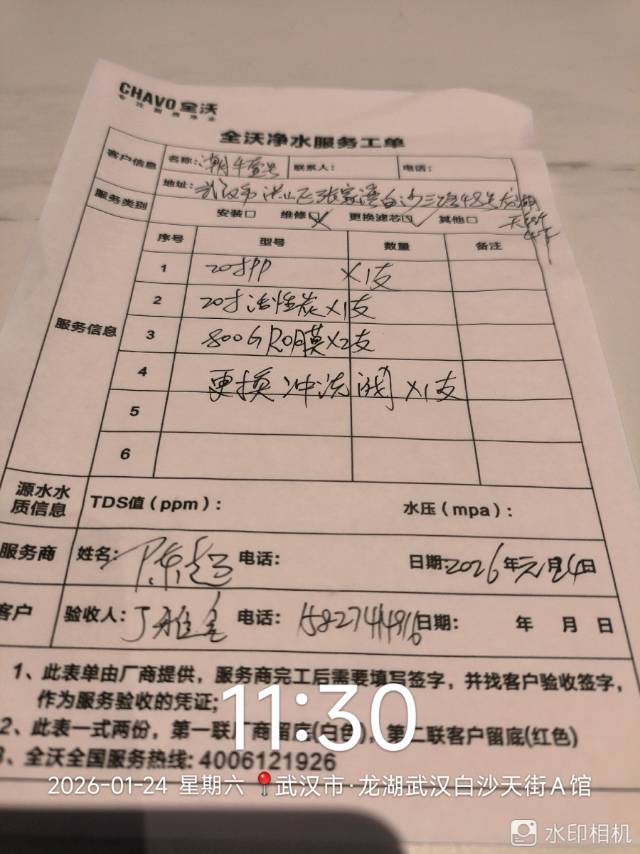 CHAVO 全沃
全沃净水服务工单
客户信息 名称: 联系人: 电话:
地址: 武汉市洪山区张家湾白沙三路48号龙湖
天街
服务类别 安装□ 维修☑ 更换滤芯☑ 其他□
序号 型号 数量 备注
服务信息
1 20寸PP ×1支
2 20寸活性炭×1支
3 800G RO膜×2支
4 更换冲洗阀×1支
5
6
源水水质信息 TDS值(ppm): 水压(mpa):
服务商 姓名: 电话: 日期:2026年元月24日
客户 验收人: 丁雅 电话: 日期: 年 月 日
1、此表单由厂商提供,服务商完工后需要填写签字,并找客户验收签字,
作为服务验收的凭证;
2、此表一式两份,第一联厂商留底(白色),第二联客户留底(红色)
3、全沃全国服务热线: 4006121926
11:30
2026-01-24 星期六 武汉市·龙湖武汉白沙天街A馆
水印相机